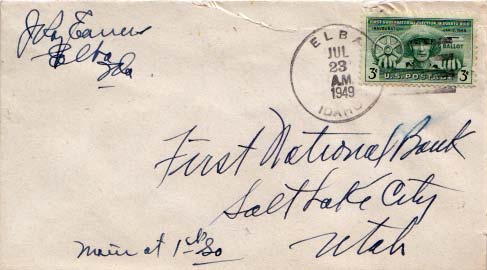 Elba
Ida
ELBA
JUL
23
A.M.
1949
IDAHO
FIRST GUBERNATORIAL ELECTION IN PUERTO RICO
INAUGURATION JAN. 2, 1949
BALLOT
3¢ U.S. POSTAGE 3¢
First National Bank
Salt Lake City
Utah
Main at 1st So